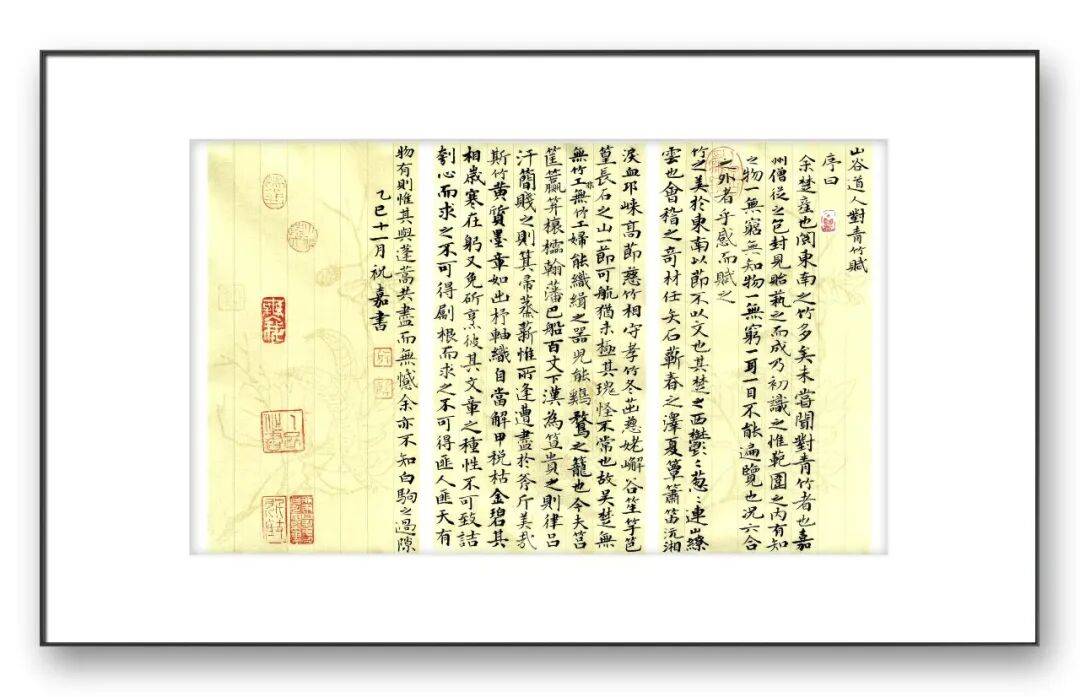 山谷道人對青竹賦
序曰
余楚產也閱東南之竹多矣未嘗聞對青竹者也嘉
州僧從之包封見貽藝之而成乃初識之惟範圍之內有知
之物一無窮無知物一無窮一耳一目不能遍覽也况六合
之外者乎感而賦之
竹之美於東南以節不以文也其楚之西欝〻葱〻連山繚
雲也會稽之奇材任矢石蘄春之澤夏簟簫笛沅湘
淚血邛崍高節慈竹相守孝竹冬茁慈姥嶰谷笙竽笆
篁長石之山一節可航猶未極其瑰怪不常也故吳楚無
無竹工無竹工婦能織緝之器兒能雞鶩之籠也今夫筥
筐籯笄榱櫺翰藩巴船百丈下漢為笪貴之則律呂
汗簡賤之則箕帚蒸薪惟所逢遭盡於斧斤美哉
斯竹黃質墨章如出杼軸織自當解甲稅枯金碧其
相歲寒在躬又免斫烹彼其文章之種性不可致詰
刳心而求之不可得劚根而求之不可得匪人匪天有
物有則惟其與蓬蒿共盡而無憾余亦不知白駒之過隙
乙巳十一月祝嘉書